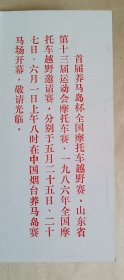 首届养马岛杯全国摩托车越野赛、山东省
第十三届运动会摩托车赛、一九八六年全国摩
托车越野邀请赛，分别于五月二十五日、二十
七日、六月一日上午八时在中国烟台养马岛赛
马场开幕，敬请光临。